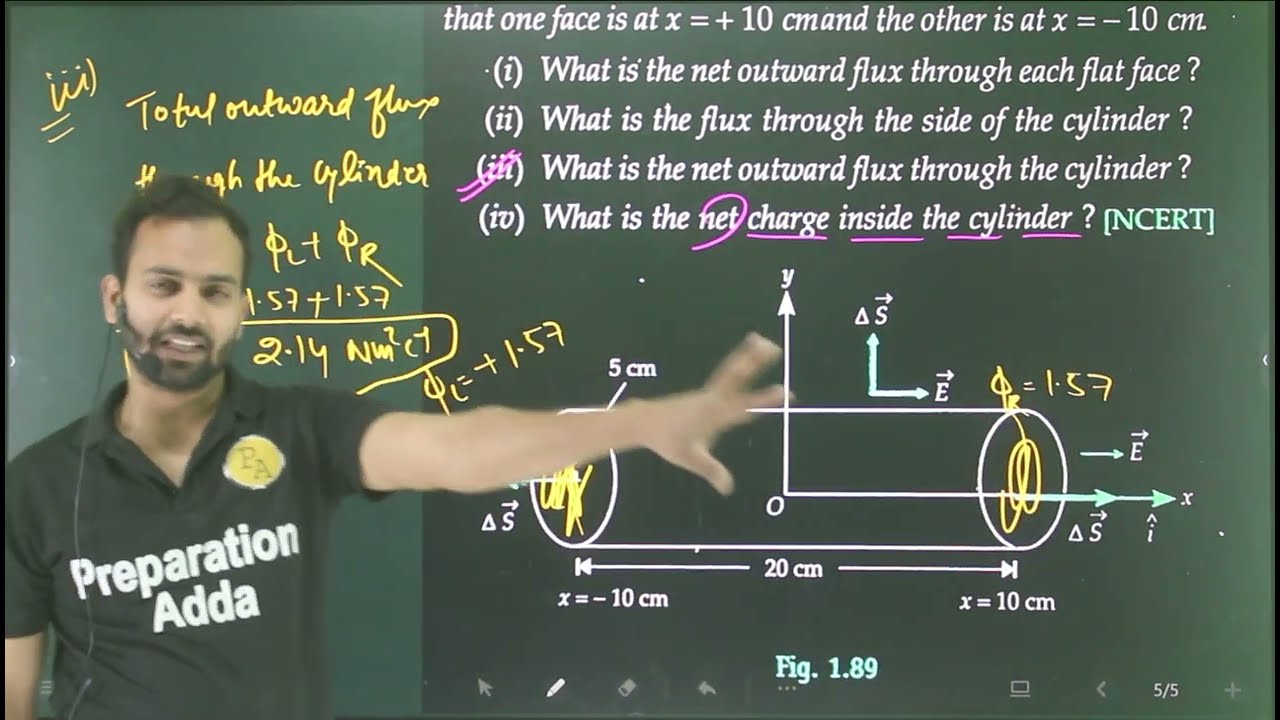 that one face is at x = + 10 cm and the other is at x = – 10 cm.
(i) What is the net outward flux through each flat face ?
(ii) What is the flux through the side of the cylinder ?
(iii) What is the net outward flux through the cylinder ?
(iv) What is the net charge inside the cylinder ? [NCERT]
iii)
Total outward flux
through the cylinder
ϕL + ϕR
1.57 + 1.57
2.14 Nm²C⁻¹
ϕL = + 1.57
5 cm
y
ΔS⃗
E⃗
ϕR = 1.57
E⃗
O
x
ΔS⃗
ΔS⃗
î
20 cm
x = – 10 cm
x = 10 cm
Fig. 1.89
PA
Preparation
Adda
5/5